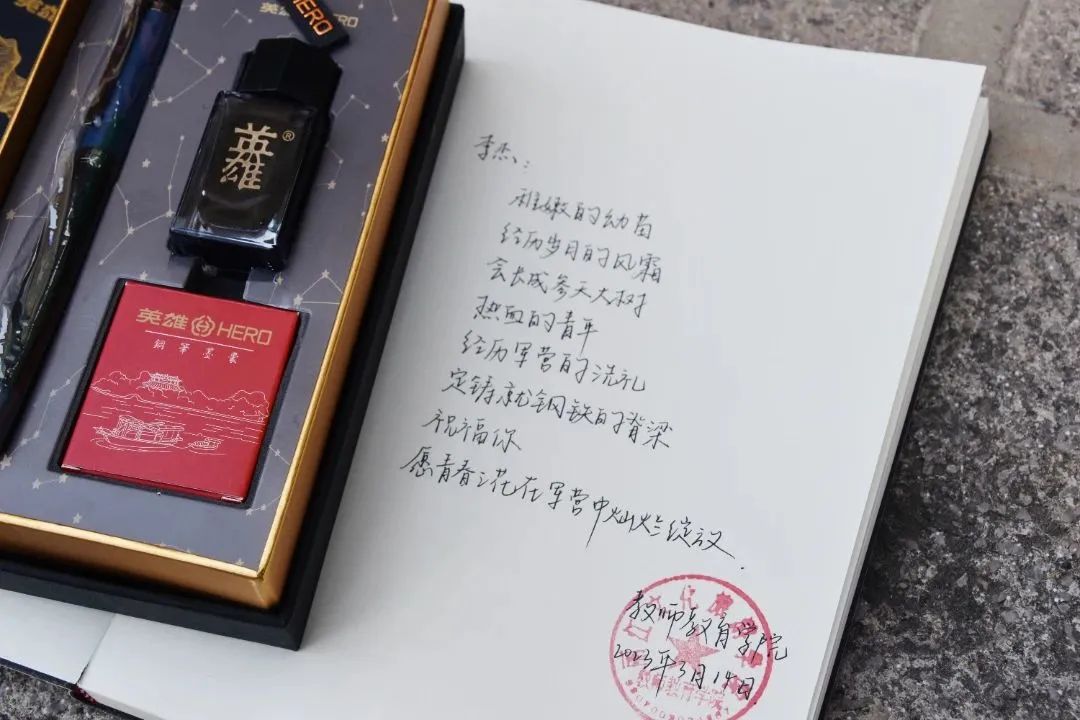 英雄
英雄HERO
HERO
英雄®
英雄 HERO
鋼筆墨囊
李杰：
稚嫩的幼苗
经历岁月的风霜
会长成参天大树
热血的青年
经历军营的洗礼
定铸就钢铁的脊梁
祝福你
愿青春之花在军营中灿烂绽放.
教师教育学院
2023年3月14日
教师教育学院